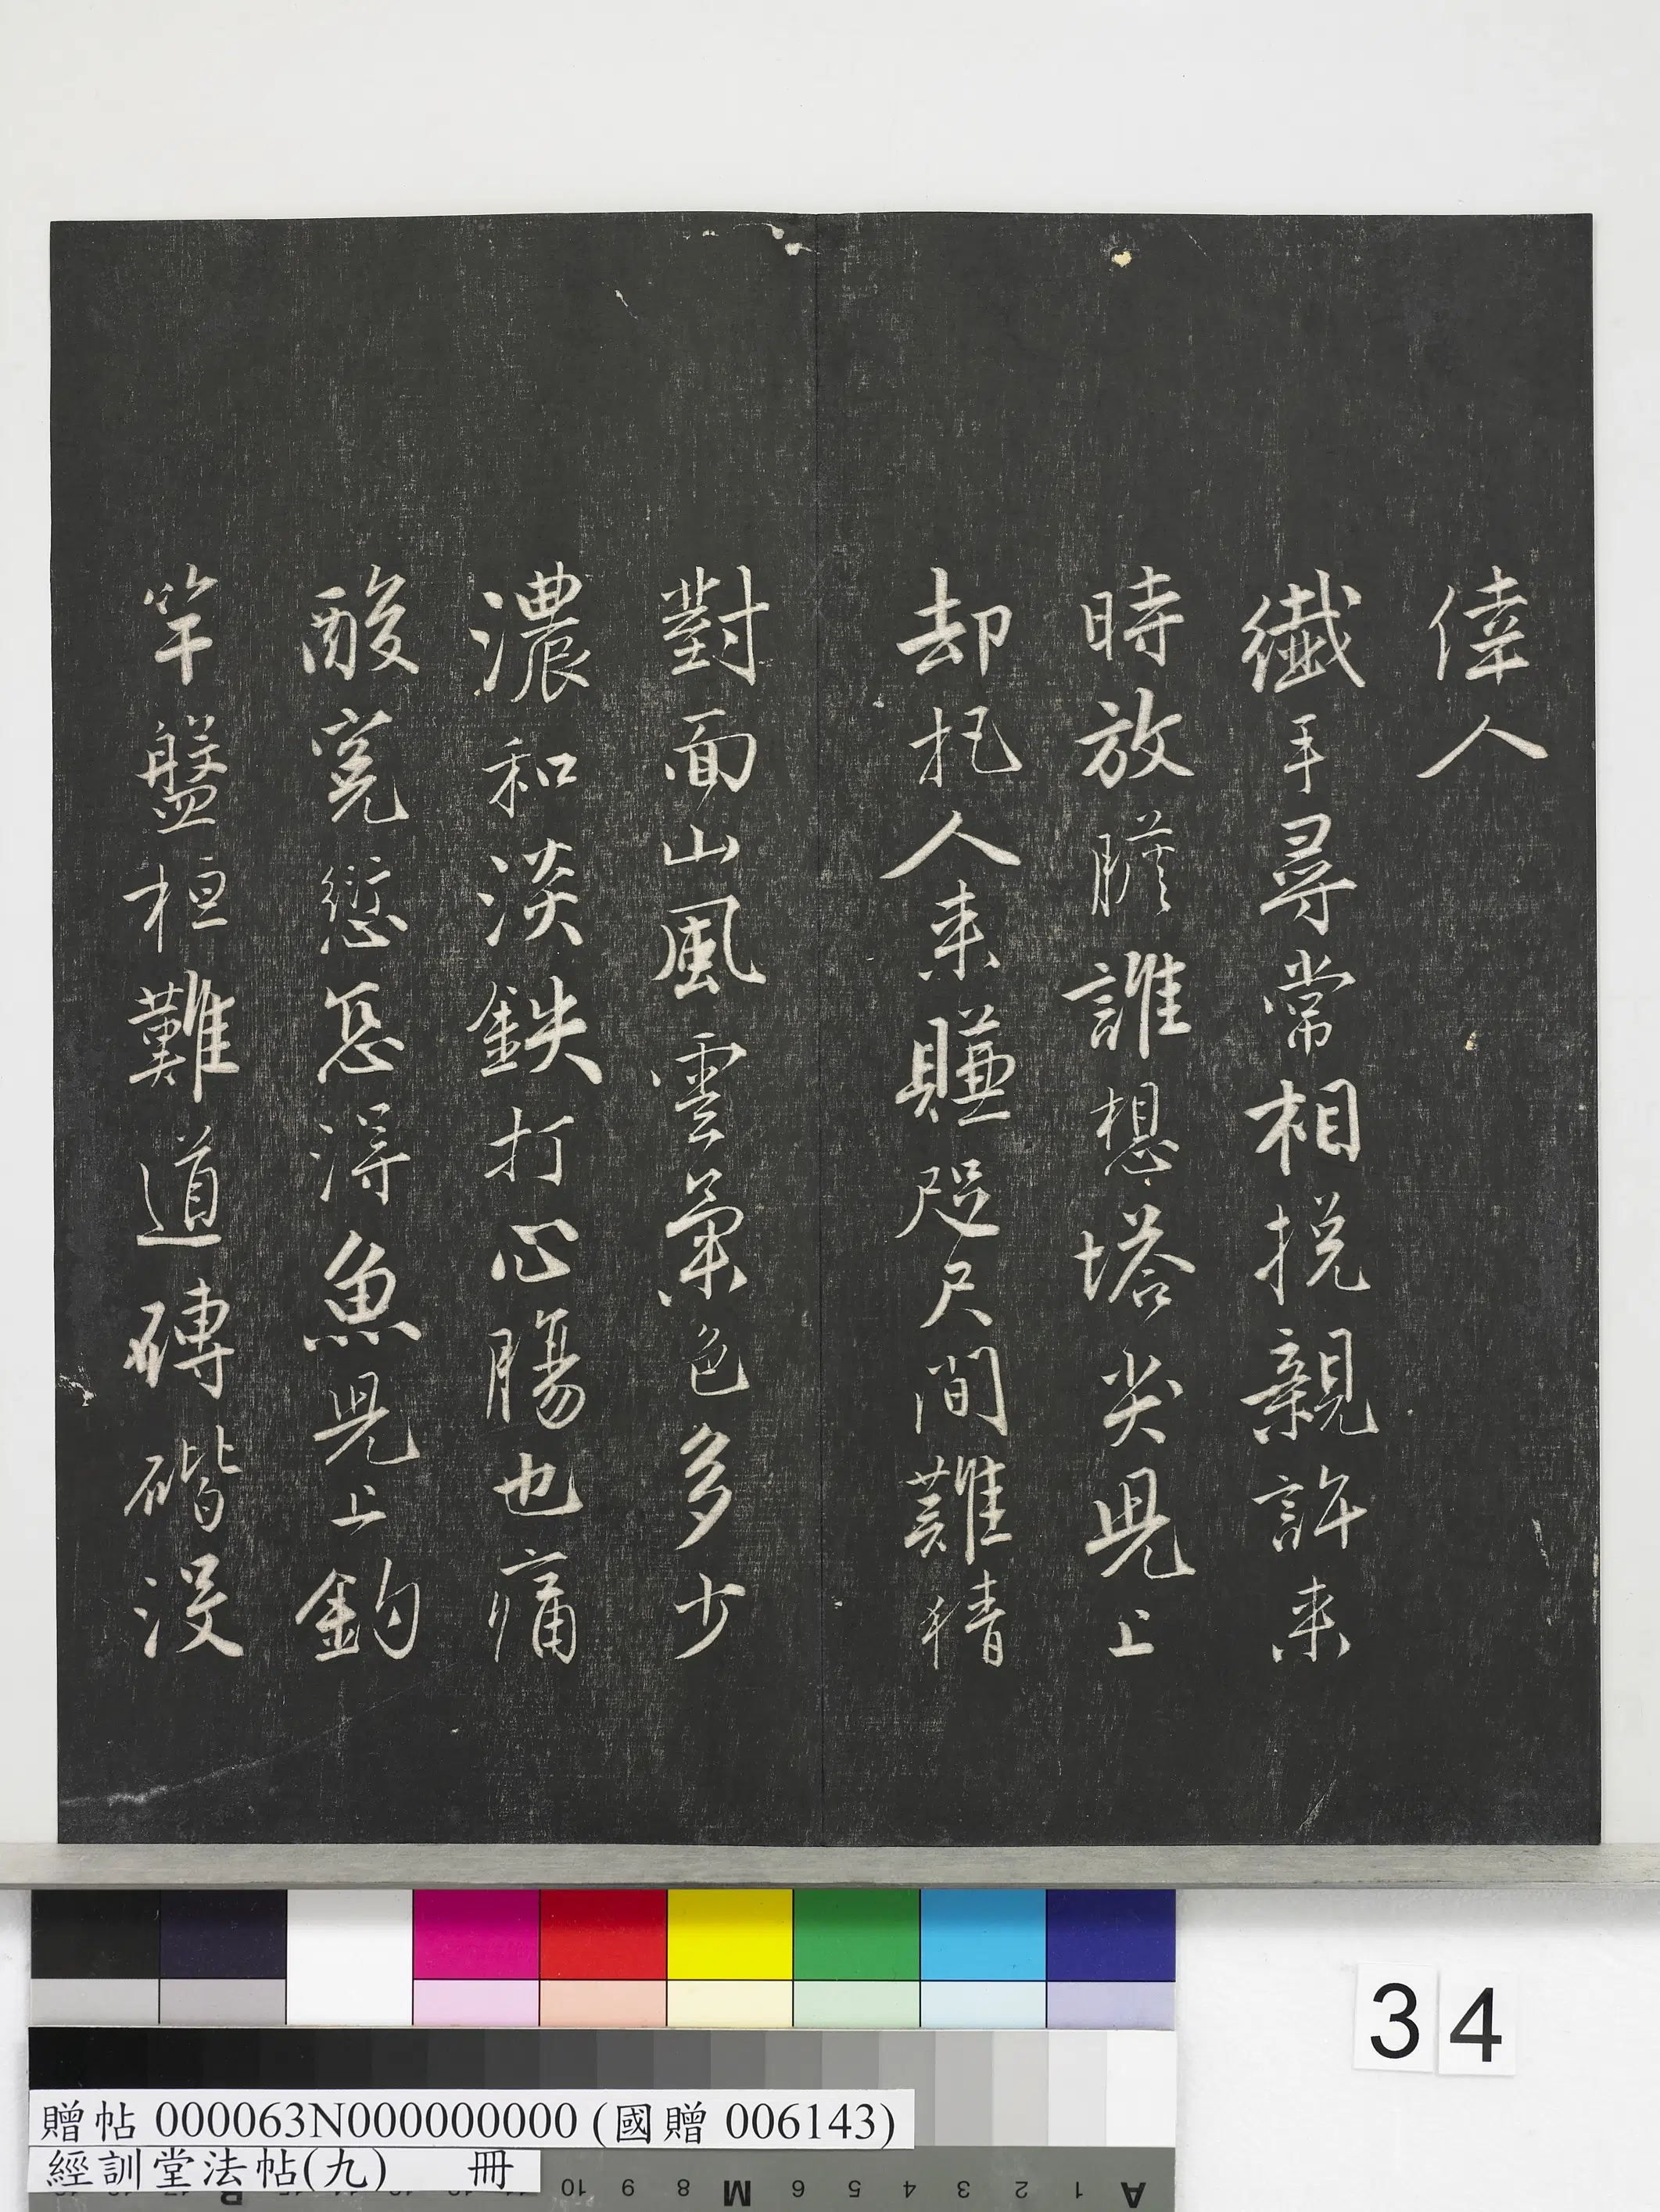 偉人
纖手尋常相挽親許来
時放膽誰想塔尖兒上
却把人来賺咫尺間難猜
對面山風雲氣色多少
濃和淡鉄打心腸也痛
酸寃愆怎得魚兒上鈎
竿盤桓難道磚䃈没
34
贈帖 000063N000000000 (國贈 006143)
經訓堂法帖(九) 冊
A 1 2 3 4 5 6 M 8 9 10